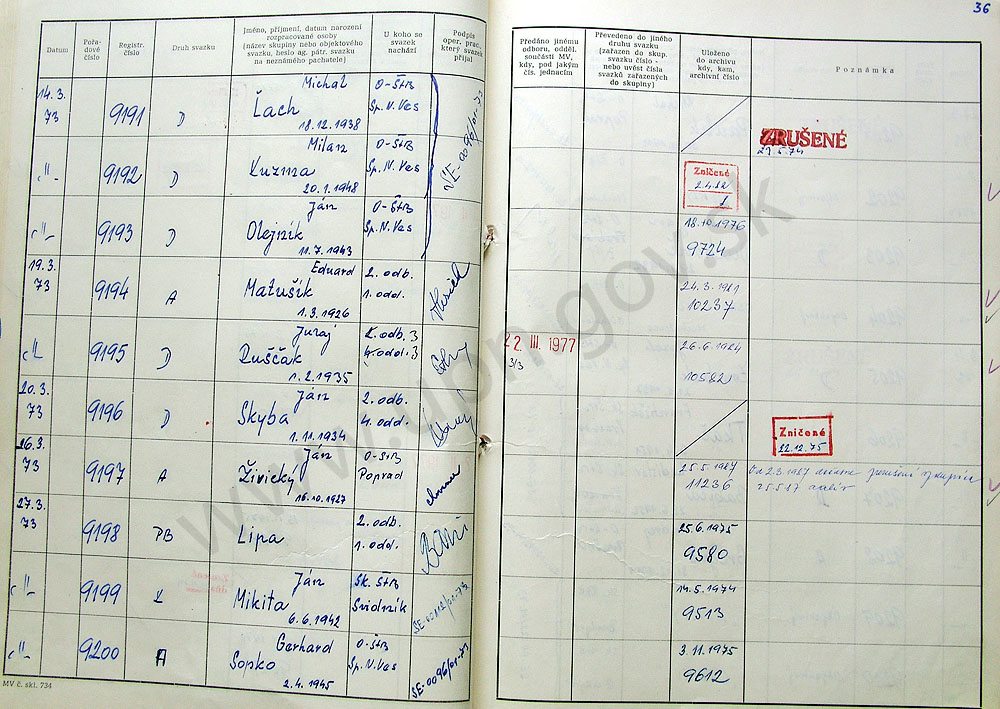 36
Datum
Pořa-
dové
číslo
Registr.
číslo
Druh svazku
Jméno, příjmení, datum narození
rozpracované osoby
(název skupiny nebo objektového
svazku, heslo ag. pátr. svazku
na neznámého pachatele)
U koho se
svazek
nachází
Podpis
oper. prac.,
který svazek
přijal
Předáno jinému
odboru, odděl.
součásti MV,
kdy, pod jakým
čís. jednacím
Převedeno do jiného
druhu svazku
(zařazen do skup.
svazku číslo -
nebo uvést čísla
svazků zařazených
do skupiny)
Uloženo
do archivu
kdy, kam,
archivní číslo
Poznámka
14.3.
73
9191
D
Michal
Lach
18.12.1938
O-ŠtB
Sp. N. Ves
VE-0096/01-73
ZRUŠENÉ
-"-
9192
D
Milan
Kuzma
20.1.1948
O-ŠtB
Sp. N. Ves
Zničené
1
-"-
9193
D
Ján
Olejník
11.7.1943
O-ŠtB
Sp. N. Ves
18.10.1976
9724
19.3.
73
9194
A
Eduard
Matušík
1.3.1926
2. odb.
1. odd.
24.3.1981
10237
-"-
9195
D
Juraj
Ruščák
1.2.1935
odb. 3
4. odd. 3
22. III. 1977
3/3
26.6.1984
10582
20.3.
73
9196
D
Ján
Skyba
1.11.1934
2. odb.
4. odd.
Zničené
22.12.75
26.3.
73
9197
A
Ján
Živický
16.10.1927
O-ŠtB
Poprad
25.5.1987
11236
Od 2.3.1987
27.3.
73
9198
PB
Lipa
2. odb.
1. odd.
25.6.1975
9580
-"-
9199
Ján
Mikita
6.6.1942
Sk. ŠtB
Svidník
14.5.1974
9513
-"-
9200
A
Gerhard
Sopko
2.4.1945
O-ŠtB
Sp. N. Ves
SE-0096/01-73
3.11.1975
9612
MV č. skl. 734
www.upn.gov.sk